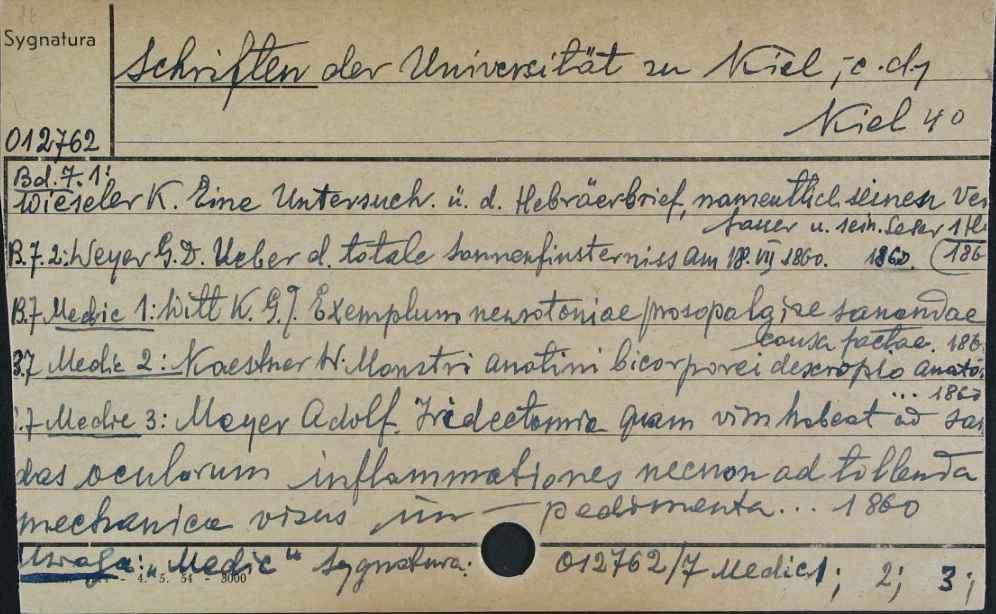 Sygnatura
Schriften der Universität zu Kiel, c.d.,
Kiel 4°
012762
Bd. 7. 1:
Wieseler K. Eine Untersuch. ü. d. Hebräerbrief, namentlich seinen Ver
fasser u. sein. Leser 1 H
186
B. 7. 2: Weyer G. D. Ueber d. totale Sonnenfinsterniss am 18. VII 1860. 1860.
B. 7 Medic 1: Witt K. G. J. Exemplum neurotomiae prosopalgiae sanandae
causa factae. 186
B. 7 Medic 2: Kaestner H. Monstri anatini bicorporei descriptio anato
... 1860
7 Medic 3: Meyer Adolf. Iridectomia quam vim habeat ad san
das oculorum inflammationes necnon ad tollenda
mechanica visus im - pedimenta... 1860
Uwaga: "Medic" Sygnatura: 012762/7 Medic 1; 2; 3;
- 4. 5. 54 - 3000